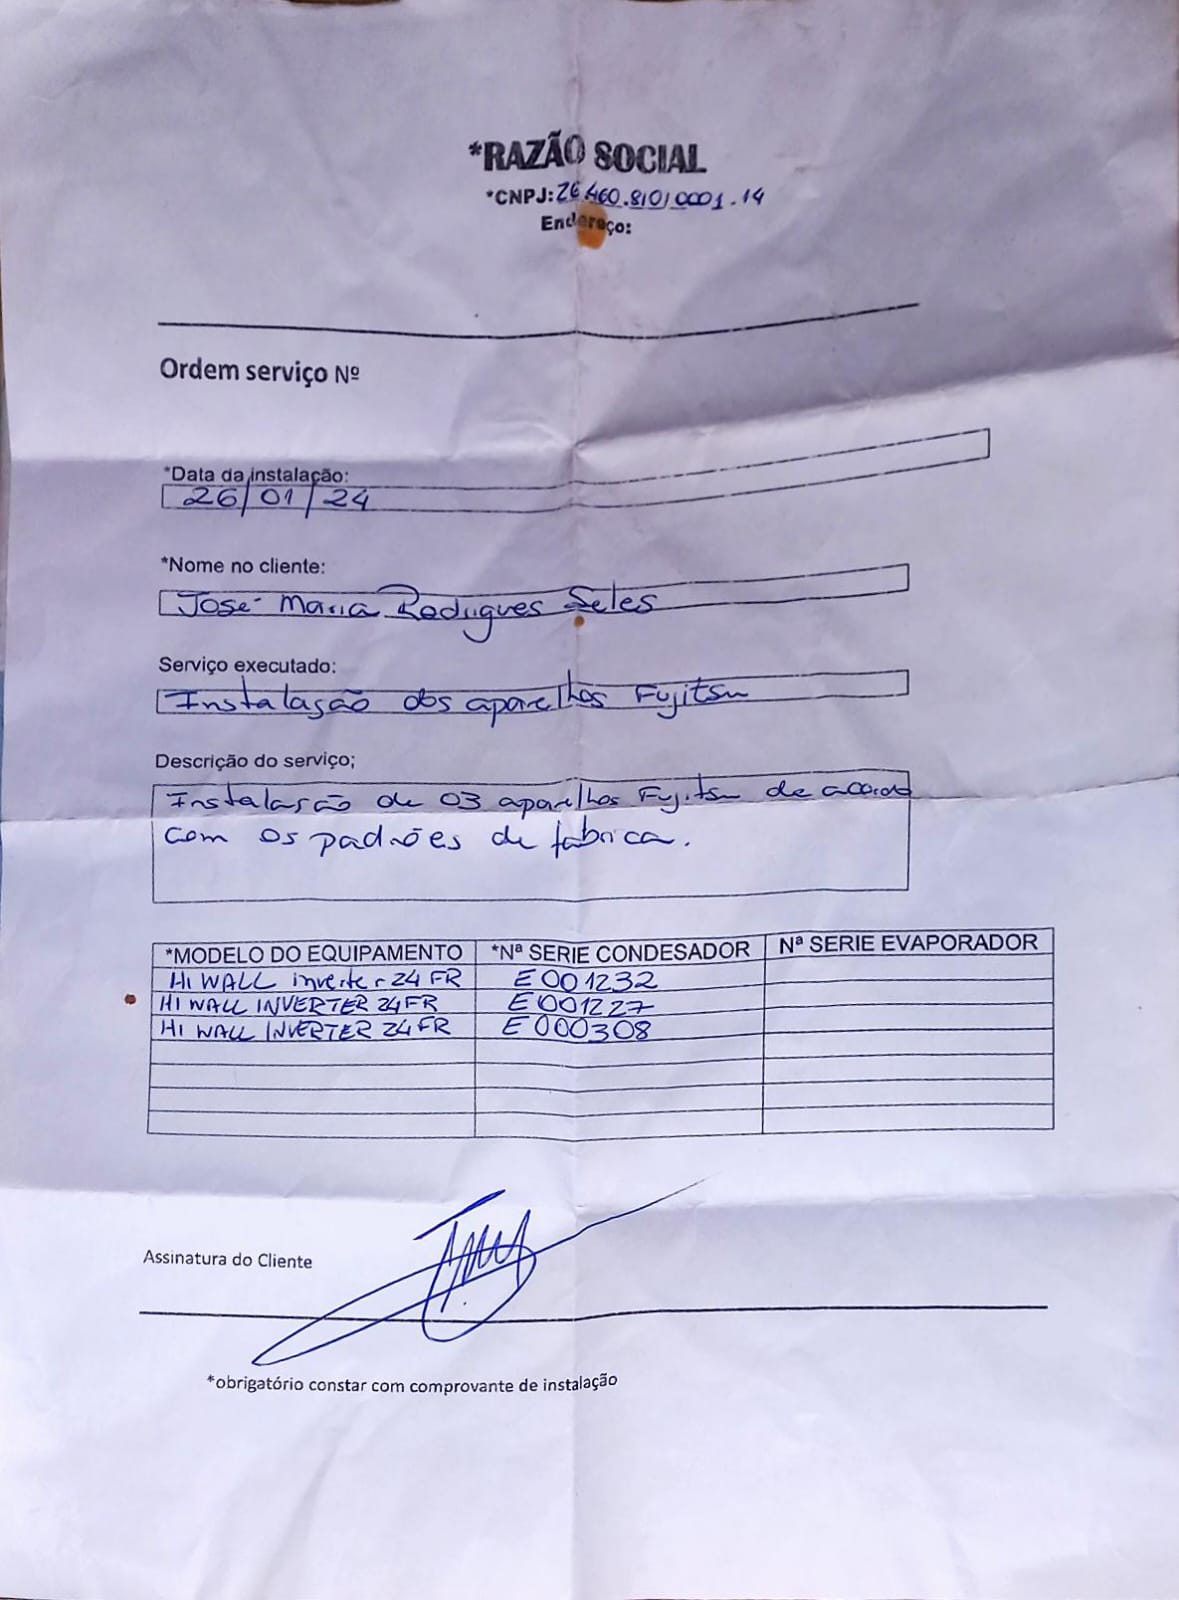 *RAZÃO SOCIAL
*CNPJ: 26.460.810/0001.14
Endereço:
Ordem serviço Nº
*Data da instalação:
26/01/24
*Nome no cliente:
José Maria Rodrigues Seles
Serviço executado:
Instalação dos aparelhos Fujitsu
Descrição do serviço;
Instalação de 03 aparelhos Fujitsu de acordo
com os padrões de fabrica.
*MODELO DO EQUIPAMENTO *Nª SERIE CONDESADOR Nª SERIE EVAPORADOR
Hi WALL inverter 24 FR E001232
HI WALL INVERTER 24FR E001227
HI WALL INVERTER 24FR E000308
Assinatura do Cliente
*obrigatório constar com comprovante de instalação